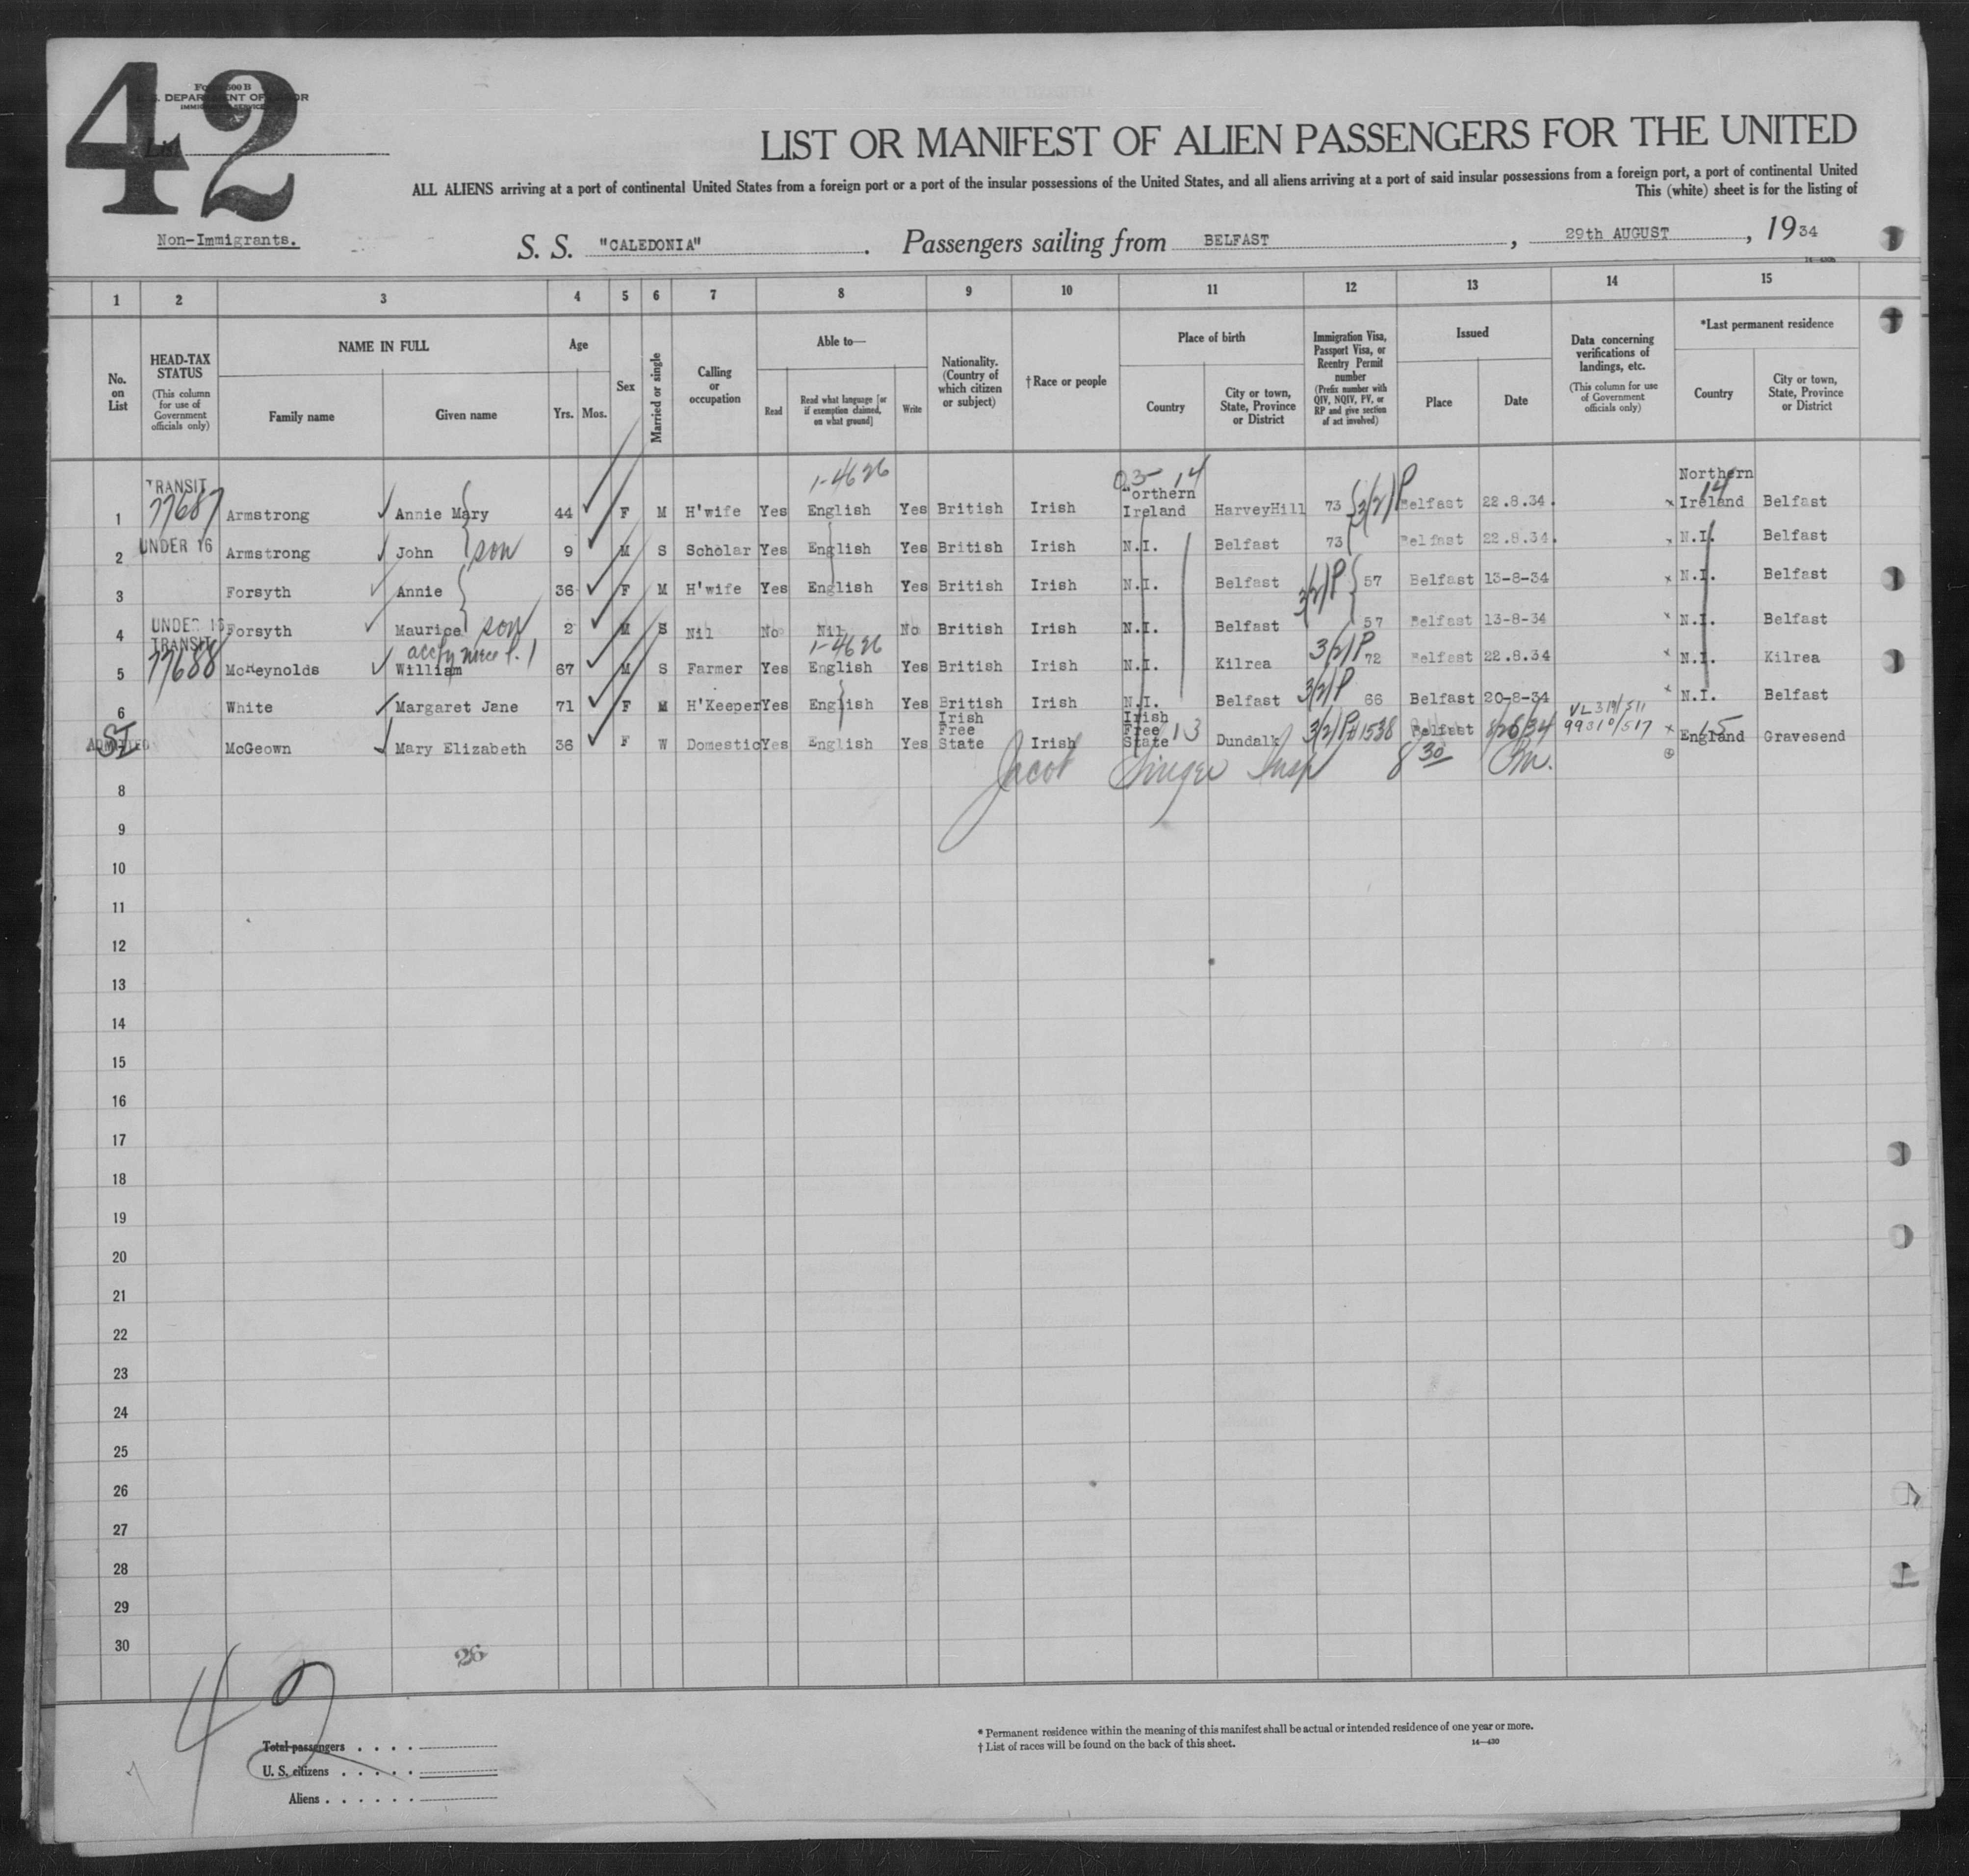 42
Form 500 B
U. S. DEPARTMENT OF LABOR
IMMIGRATION SERVICE
List
LIST OR MANIFEST OF ALIEN PASSENGERS FOR THE UNITED
ALL ALIENS arriving at a port of continental United States from a foreign port or a port of the insular possessions of the United States, and all aliens arriving at a port of said insular possessions from a foreign port, a port of continental United
This (white) sheet is for the listing of
Non-Immigrants.
S. S. "CALEDONIA". Passengers sailing from BELFAST, 29th AUGUST, 1934
1 2 3 4 5 6 7 8 9 10 11 12 13 14 15
No. on List
HEAD-TAX STATUS (This column for use of Government officials only)
NAME IN FULL Family name Given name
Age Yrs. Mos.
Sex
Married or single
Calling or occupation
Able to— Read Read what language [or if exemption claimed, on what ground] Write
Nationality. (Country of which citizen or subject)
† Race or people
Place of birth Country City or town, State, Province or District
Immigration Visa, Passport Visa, or Reentry Permit number (Prefix number with QIV, NQIV, PV, or RP and give section of act involved)
Issued Place Date
Data concerning verifications of landings, etc. (This column for use of Government officials only)
*Last permanent residence Country City or town, State, Province or District
TRANSIT 1-4626 14 Northern 14
1 77687 Armstrong Annie Mary 44 F M H'wife Yes English Yes British Irish Northern Ireland HarveyHill 73 3/2/P Belfast 22.8.34. Ireland Belfast
2 UNDER 16 Armstrong John son 9 M S Scholar Yes English Yes British Irish N.I. Belfast 73 Belfast 22.8.34. N.I. Belfast
3 Forsyth Annie 36 F M H'wife Yes English Yes British Irish N.I. Belfast 3/2/P 57 Belfast 13-8-34 N.I. Belfast
4 UNDER 16 Forsyth Maurice son 2 M S Nil No Nil No British Irish N.I. Belfast 57 Belfast 13-8-34 N.I. Belfast
TRANSIT accpy niece 1-4626
5 77688 McReynolds William 67 M S Farmer Yes English Yes British Irish N.I. Kilrea 3/2/P 72 Belfast 22.8.34 N.I. Kilrea
6 White Margaret Jane 71 F M H'Keeper Yes English Yes British Irish N.I. Belfast 3/2/P 66 Belfast 20-8-34 N.I. Belfast
SI ADMITTED McGeown Mary Elizabeth 36 F W Domestic Yes English Yes Irish Free State Irish Irish Free State 13 Dundalk 3/2/P 1538 Belfast 8/28/34 99310/517 England 15 Gravesend
Jacob Singer Insp 8 30 PM.
8
9
10
11
12
13
14
15
16
17
18
19
20
21
22
23
24
25
26
27
28
29
30
26
42
Total passengers
U. S. citizens
Aliens
* Permanent residence within the meaning of this manifest shall be actual or intended residence of one year or more.
† List of races will be found on the back of this sheet.
14—430